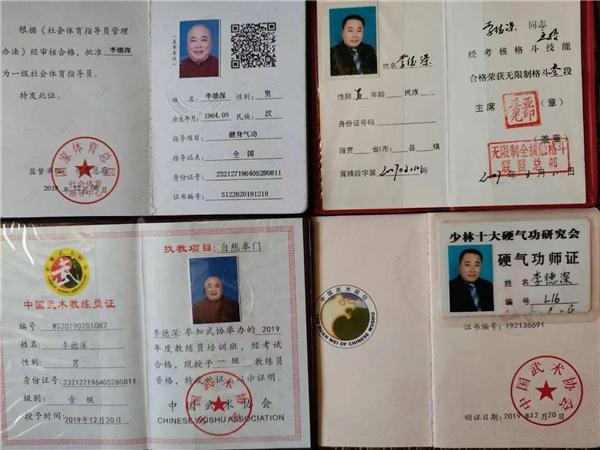 根据《社会体育指导员管理
办法》经审核合格，批准 李德深
为一级社会体育指导员。
特发此证。
国家体育总局
监督单位
姓名： 李德深 性别： 男
出生年月： 1964.05 民族： 汉
指导项目： 健身气功
指导站点： 全国
身份证号： 232127196405280811
证书编号： S122620191218
姓名 李德深
性别 男 年龄 民族
身份证号码
籍贯 省(市) 县 镇
冀精段字第
李德深 同志
经考核格斗技能
合格荣获无限制格斗 叁 段
主席 （章）
（盖章）
无限制全接触格斗
联盟总部
中国武术教练员证
编号： WS20190701087
姓名： 李德深
性别： 男
身份证号： 232127196405280811
级别： 壹级
授予时间： 2019年12月20日
执教项目：自然拳门
李德深：参加武协举办的2019
年度教练员培训班，经考试
合格，现授予一级 教练员
资格，特发此证，以示证明。
中国武术协会
CHINESE WUSHU ASSOCIATION
中国武术协会
少林十大硬气功研究会
硬气功师证
姓名 李德深
编号 L16
证书编号：192136691
中国武术协会
颁证日期：2019年12月20日